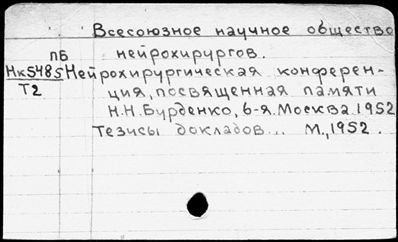 Всесоюзное научное общество
ПБ нейрохирургов.
Нк5485 Нейрохирургическая конферен-
Т2 ция, посвященная памяти
Н.Н.Бурденко, 6-я. Москва 1952
Тезисы докладов... М., 1952.